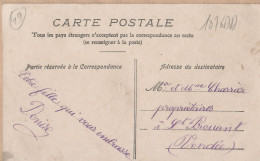 CARTE POSTALE
Tous les pays étrangers n'acceptent pas la correspondance au recto
(se renseigner à la poste)
Partie réservée à la Correspondance
Adresse du destinataire
Mr et Mme Charrier
propriétaires
à St
(Vendée)
fille qui vous embrasse
Denise